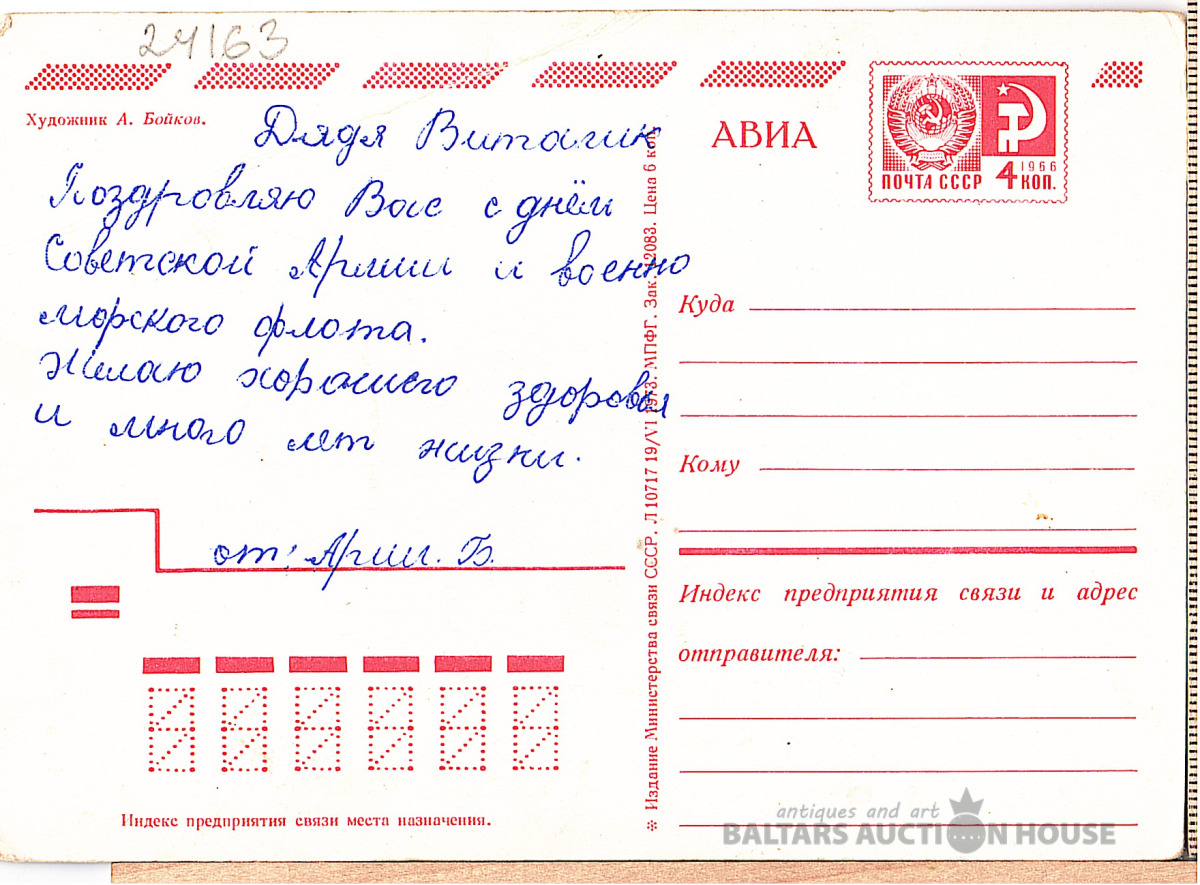 24163
Художник А. Бойков.
Дядя Виталик
Поздровляю Вас с днём
Советской Армии и военно
морского флота.
Желаю хорошего здоровья
и много лет жизни.
от: Арии. Б.
Индекс предприятия связи места назначения.
✲ Издание Министерства связи СССР. Л 10717 19/VI 1973. МПФГ. Зак. 12083. Цена 6 коп.
АВИА
ПОЧТА СССР
1966
4 КОП.
Куда
Кому
Индекс предприятия связи и адрес
отправителя:
antiques and art
BALTARS AUCTION HOUSE